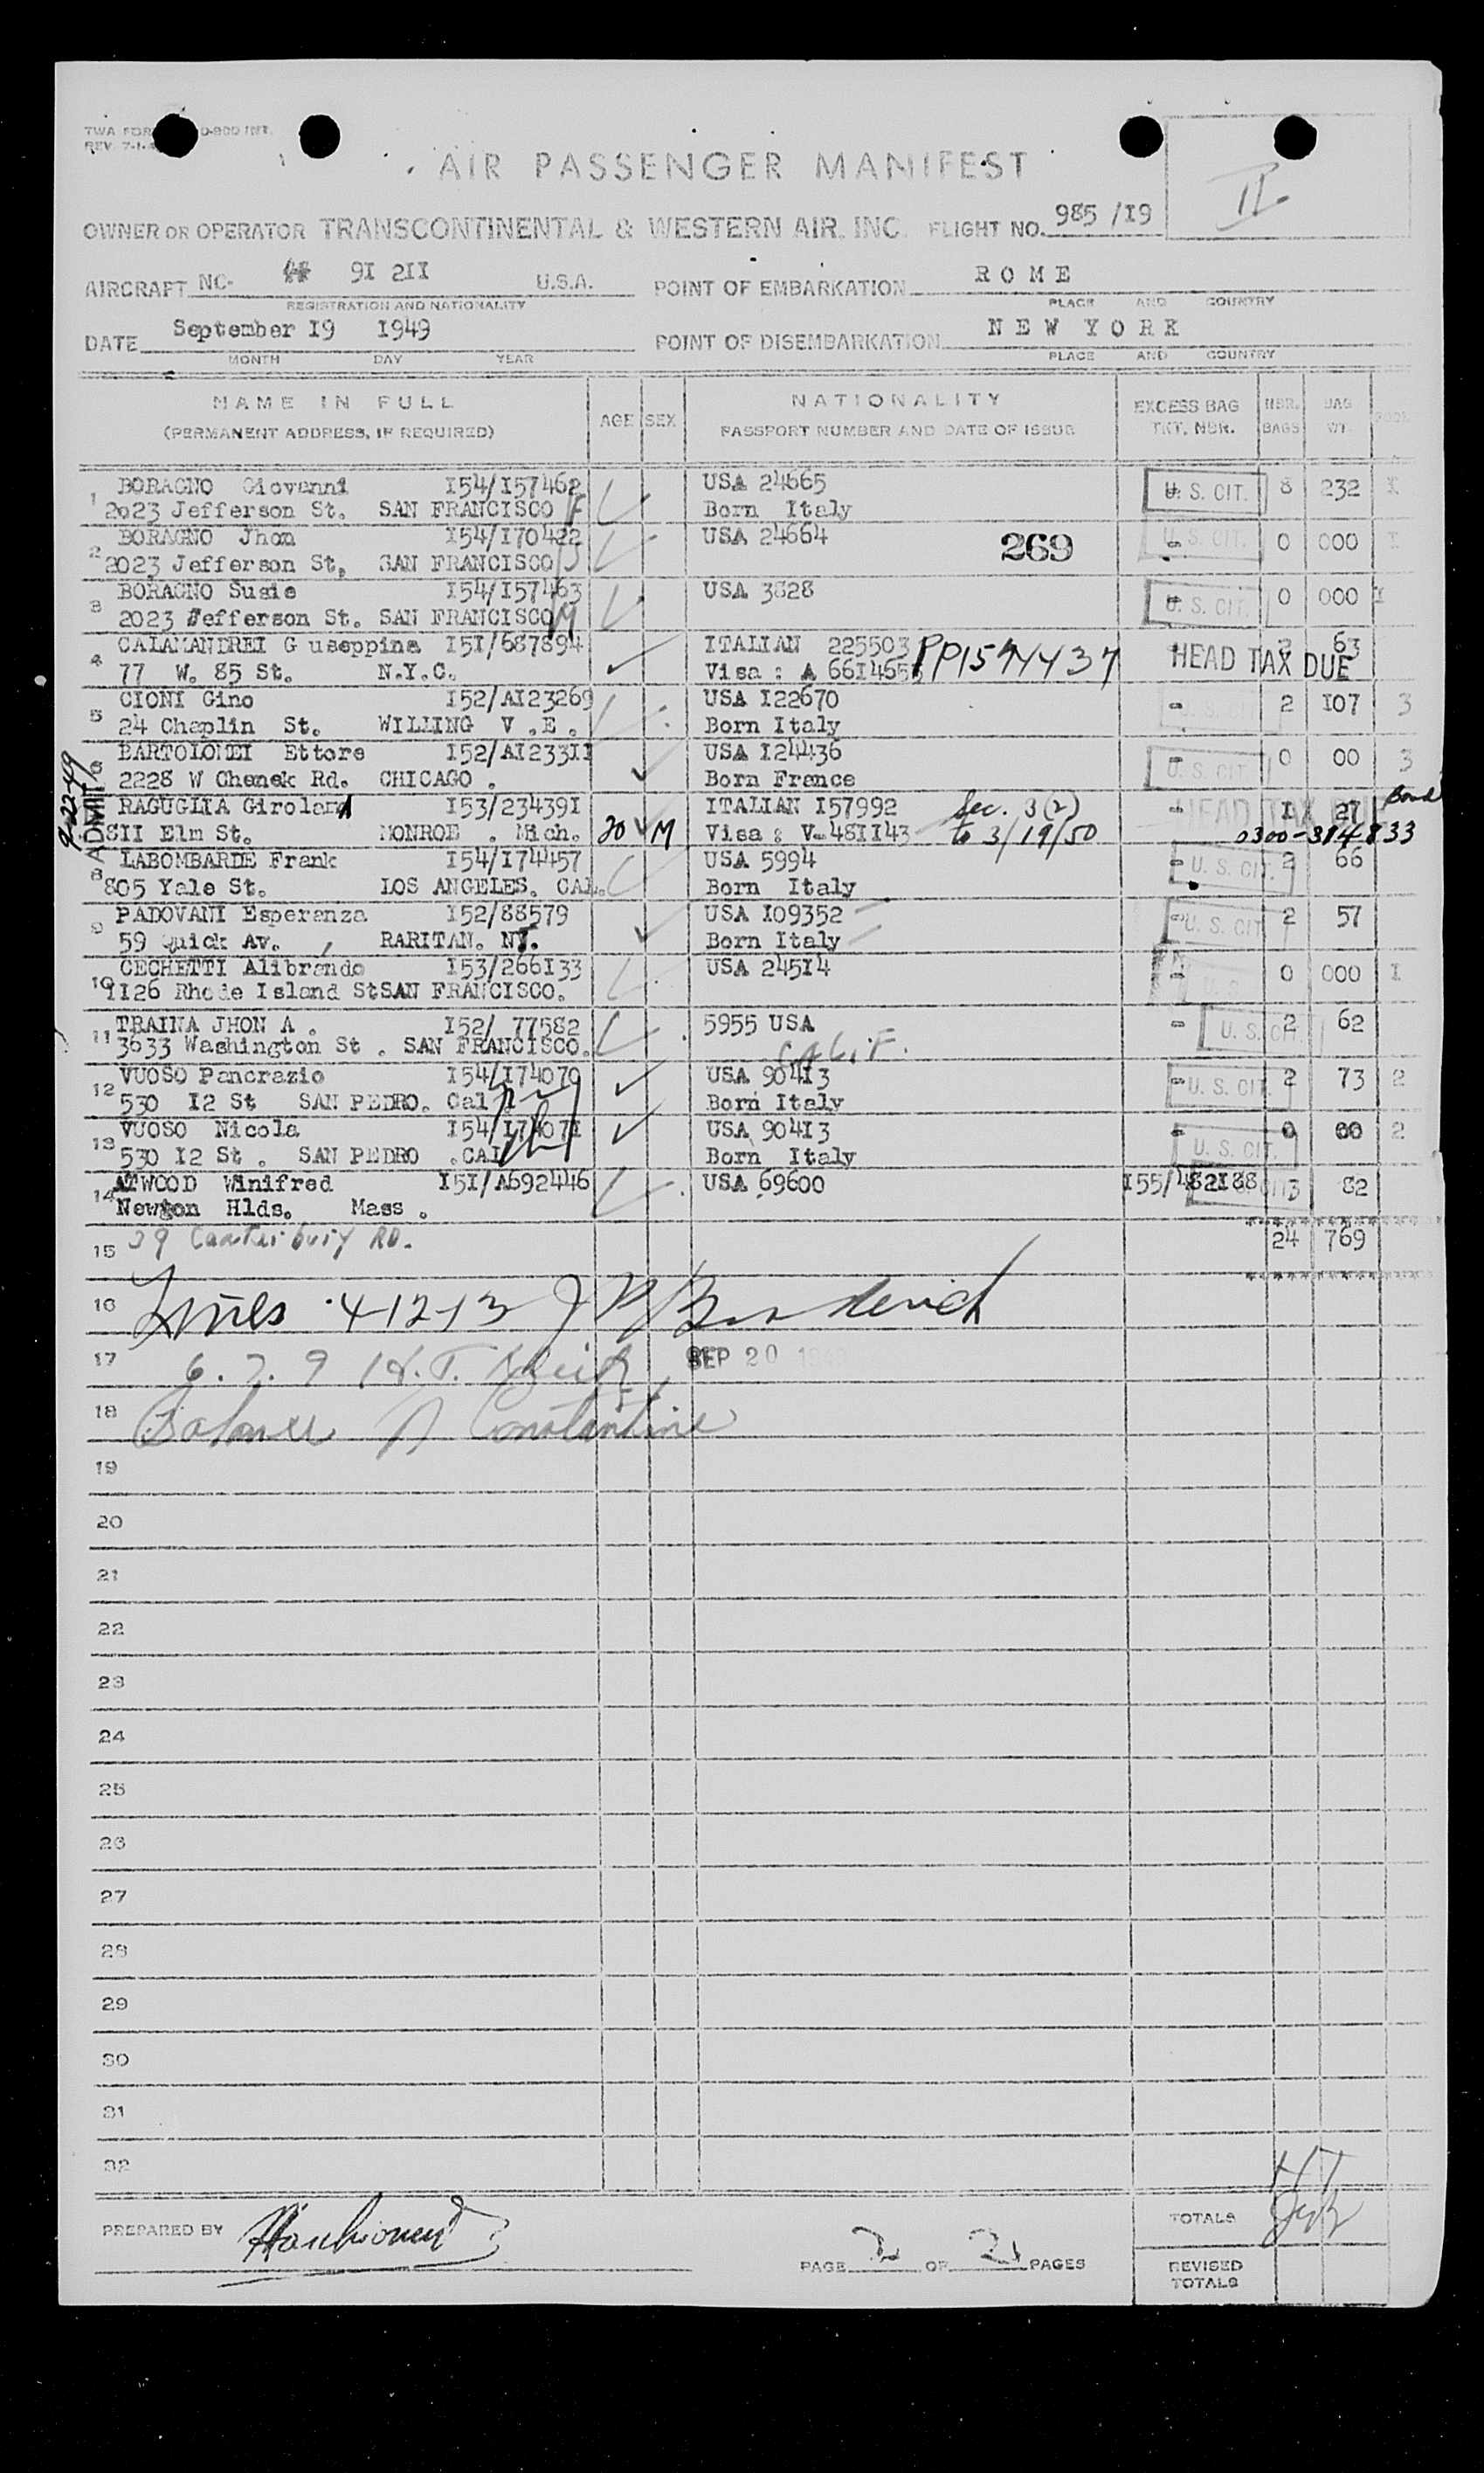 TWA FOR 0-800 INT.
REV. 7-1-4
AIR PASSENGER MANIFEST
II
OWNER OR OPERATOR TRANSCONTINENTAL & WESTERN AIR, INC. FLIGHT NO. 985 /I9
AIRCRAFT NC- 9I 2II U.S.A. POINT OF EMBARKATION R O M E
REGISTRATION AND NATIONALITY PLACE AND COUNTRY
DATE September I9 I949 POINT OF DISEMBARKATION N E W Y O R K
MONTH DAY YEAR PLACE AND COUNTRY
NAME IN FULL AGE SEX NATIONALITY EXCESS BAG NBR. BAG
(PERMANENT ADDRESS, IF REQUIRED) PASSPORT NUMBER AND DATE OF ISSUE TKT. NBR. BAGS WT.
1 BORAGNO Giovanni I54/I57462 USA 24665 U. S. CIT. 8 232 I
2023 Jefferson St. SAN FRANCISCO F Born Italy
2 BORAGNO Jhon I54/I70422 USA 24664 269 U. S. CIT. 0 000 I
2023 Jefferson St, SAN FRANCISCO
3 BORAGNO Susie I54/I57463 USA 3828 U. S. CIT. 0 000 I
2023 Jefferson St. SAN FRANCISCO M
4 CALAMANDREI G useppina I5I/687894 ITALIAN 225503 63
77 W. 85 St. N.Y.C. Visa : A 66I465 HEAD TAX DUE
5 CIONI Gino I52/AI23269 USA I22670 U. S. CIT. 2 I07 3
24 Chaplin St. WILLING V .E . Born Italy
6 BARTOLOMEI Ettore I52/AI233II USA I24436 U. S. CIT. 0 00 3
2228 W Chenek Rd. CHICAGO . Born France
9-22-49 ADMIT RAGUGLIA Giroland I53/23439I ITALIAN I57992 Sec. 3(2) HEAD TAX I 27 Bond
8II Elm St. MONROE . Mich. 20 M Visa : V- 48II43 to 3/19/50 0300-314833
8 LABOMBARDE Frank I54/I74457 USA 5994 U. S. CIT. 2 66
805 Yale St. LOS ANGELES. CAL. Born Italy
9 PADOVANI Esperanza I52/88579 USA I09352 U. S. CIT. 2 57
59 Quick Av. , RARITAN. NJ. Born Italy
10 CECHETTI Alibrando I53/266I33 USA 245I4 U. S. 0 000 I
II26 Rhode Island St SAN FRANCISCO.
11 TRAINA JHON A . I52/ 77582 5955 USA U. S. CIT. 2 62
3633 Washington St . SAN FRANCISCO. CALIF.
12 VUOSO Pancrazio I54/I74070 USA 904I3 U. S. CIT. 2 73 2
530 I2 St SAN PEDRO. Cal Born Italy
13 VUOSO Nicola I54/I7407I USA 904I3 U. S. CIT. 0 00 2
530 I2 St . SAN PEDRO .CAL Born Italy
14 ATWOOD Winifred I5I/A692446 USA 69600 I55/482I88 3 82
Newton Hlds. Mass .
15 39 Canterbury RD. 24 769
16 Lines 4-12-13
17 6. 7. 9 SEP 20 1949
18 Balance Constantine
19
20
21
22
23
24
25
26
27
28
29
30
31
32
PREPARED BY TOTALS
PAGE 2 OF 2 PAGES REVISED
TOTALS